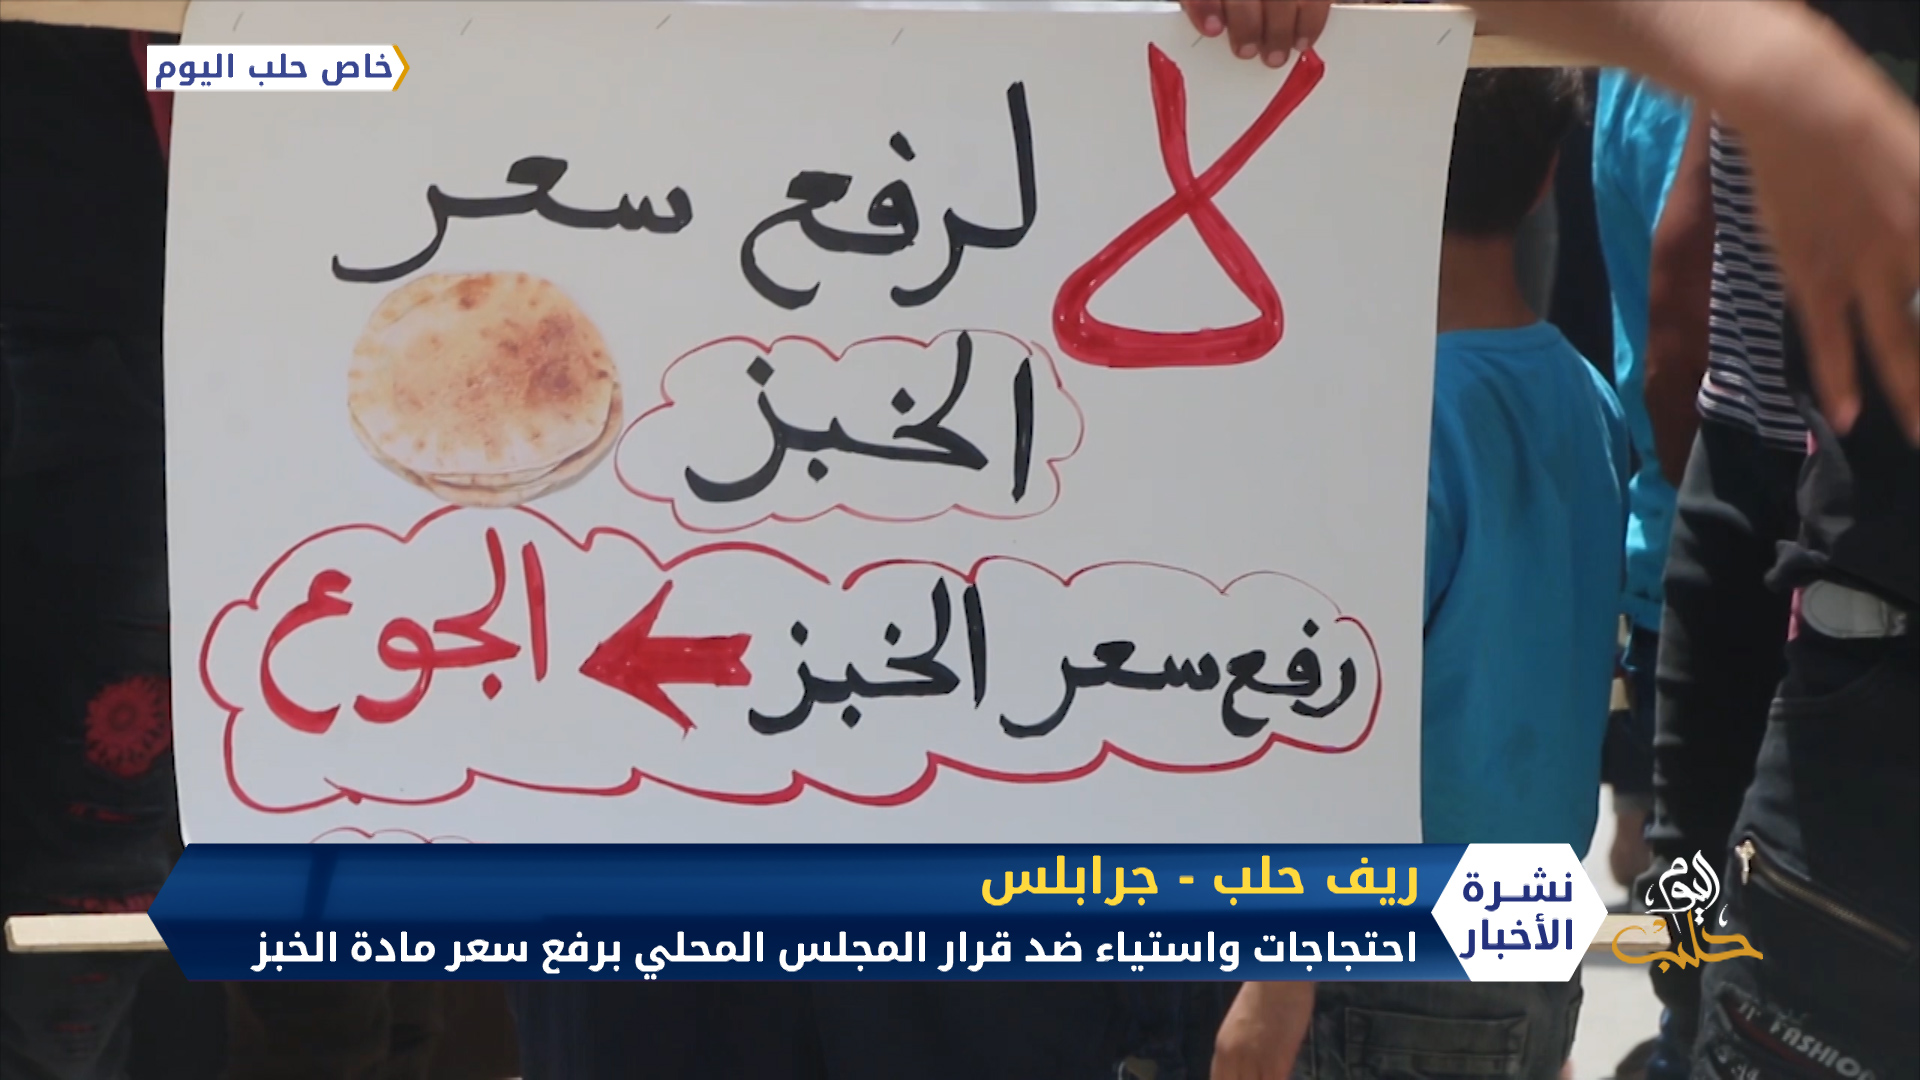 خاص حلب اليوم
لا
لرفع سعر
الخبز
رفع سعر الخبز الجوع
ريف حلب - جرابلس
احتجاجات واستياء ضد قرار المجلس المحلي برفع سعر مادة الخبز
نشرة
الأخبار
حلب اليوم
FASHION